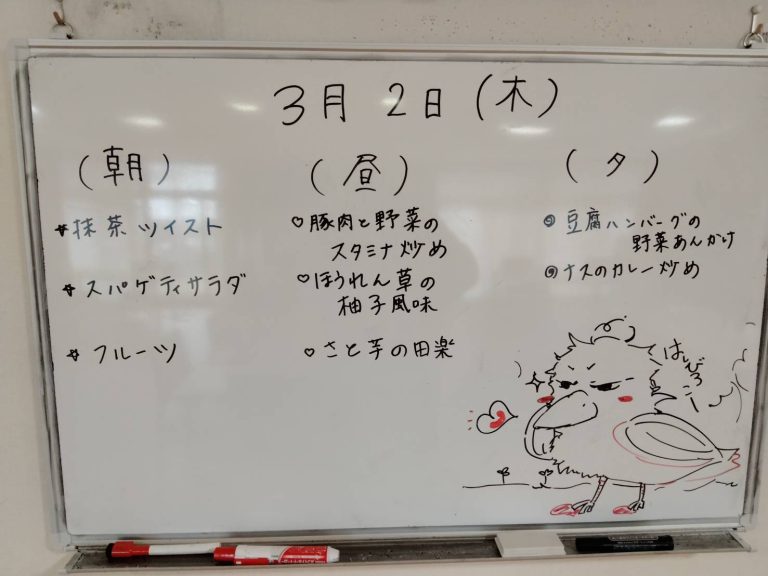 3月 2日 (木)
(朝)
☆抹茶ツイスト
☆スパゲティサラダ
☆フルーツ
(昼)
♡豚肉と野菜の
スタミナ炒め
♡ほうれん草の
柚子風味
♡さと芋の田楽
(夕)
◎豆腐ハンバーグの
野菜あんかけ
◎ナスのカレー炒め
はしびろこー